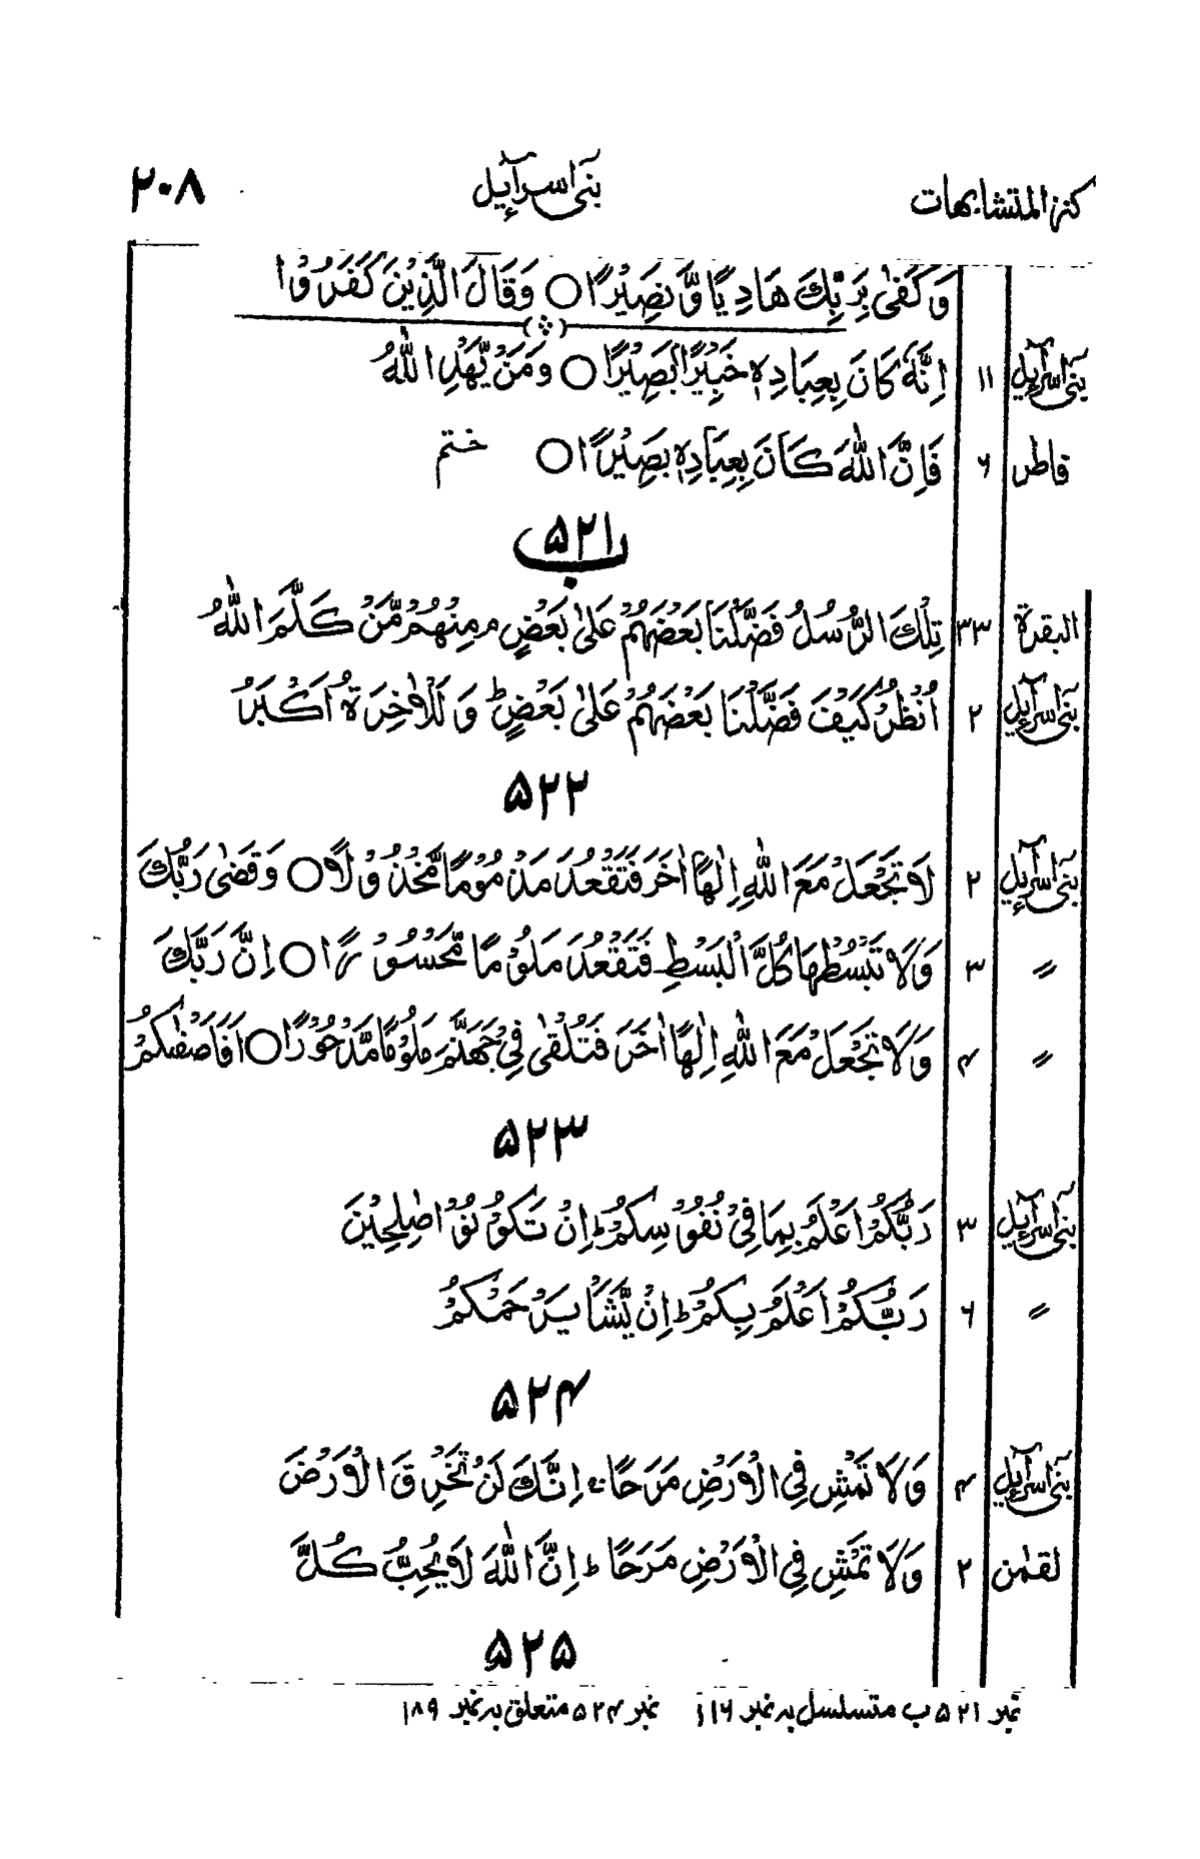 كنز المتشابهات بنی اسرآءیل ۲۰۸
وَكَفٰى بِرَبِّكَ هَادِيًا وَّنَصِيْرًا ○ وَقَالَ الَّذِيْنَ كَفَرُوْا
بنی اسرآءیل ۱۱ اِنَّهٗ كَانَ بِعِبَادِهٖ خَبِيْرًۢا بَصِيْرًا ○ وَمَنْ يَّهْدِ اللّٰهُ
فاطر ۶ فَاِنَّ اللّٰهَ كَانَ بِعِبَادِهٖ بَصِيْرًا ○ ختم
۵۲۱ ب
البقرة ۳۳ تِلْكَ الرُّسُلُ فَضَّلْنَا بَعْضَهُمْ عَلٰى بَعْضٍ م مِنْهُمْ مَّنْ كَلَّمَ اللّٰهُ
بنی اسرآءیل ۲ اُنْظُرْ كَيْفَ فَضَّلْنَا بَعْضَهُمْ عَلٰى بَعْضٍ ط وَلَلْاٰخِرَةُ اَكْبَرُ
۵۲۲
بنی اسرآءیل ۲ لَا تَجْعَلْ مَعَ اللّٰهِ اِلٰهًا اٰخَرَ فَتَقْعُدَ مَذْمُوْمًا مَّخْذُوْلًا ○ وَقَضٰى رَبُّكَ
〃 ۳ وَلَا تَبْسُطْهَا كُلَّ الْبَسْطِ فَتَقْعُدَ مَلُوْمًا مَّحْسُوْرًا ○ اِنَّ رَبَّكَ
〃 ۴ وَلَا تَجْعَلْ مَعَ اللّٰهِ اِلٰهًا اٰخَرَ فَتُلْقٰى فِيْ جَهَنَّمَ مَلُوْمًا مَّدْحُوْرًا ○ اَفَاَصْفٰىكُمْ
۵۲۳
بنی اسرآءیل ۳ رَبُّكُمْ اَعْلَمُ بِمَا فِيْ نُفُوْسِكُمْ ط اِنْ تَكُوْنُوْا صٰلِحِيْنَ
〃 ۶ رَبُّكُمْ اَعْلَمُ بِكُمْ ط اِنْ يَّشَاْ يَرْحَمْكُمْ
۵۲۴
بنی اسرآءیل ۴ وَلَا تَمْشِ فِي الْاَرْضِ مَرَحًا ج اِنَّكَ لَنْ تَخْرِقَ الْاَرْضَ
لقمٰن ۲ وَلَا تَمْشِ فِي الْاَرْضِ مَرَحًا ط اِنَّ اللّٰهَ لَا يُحِبُّ كُلَّ
۵۲۵
نمبر ۵۲۱ ب متسلسل بہ نمبر ۱۱۶ نمبر ۵۲۴ متعلق بہ نمبر ۱۸۹